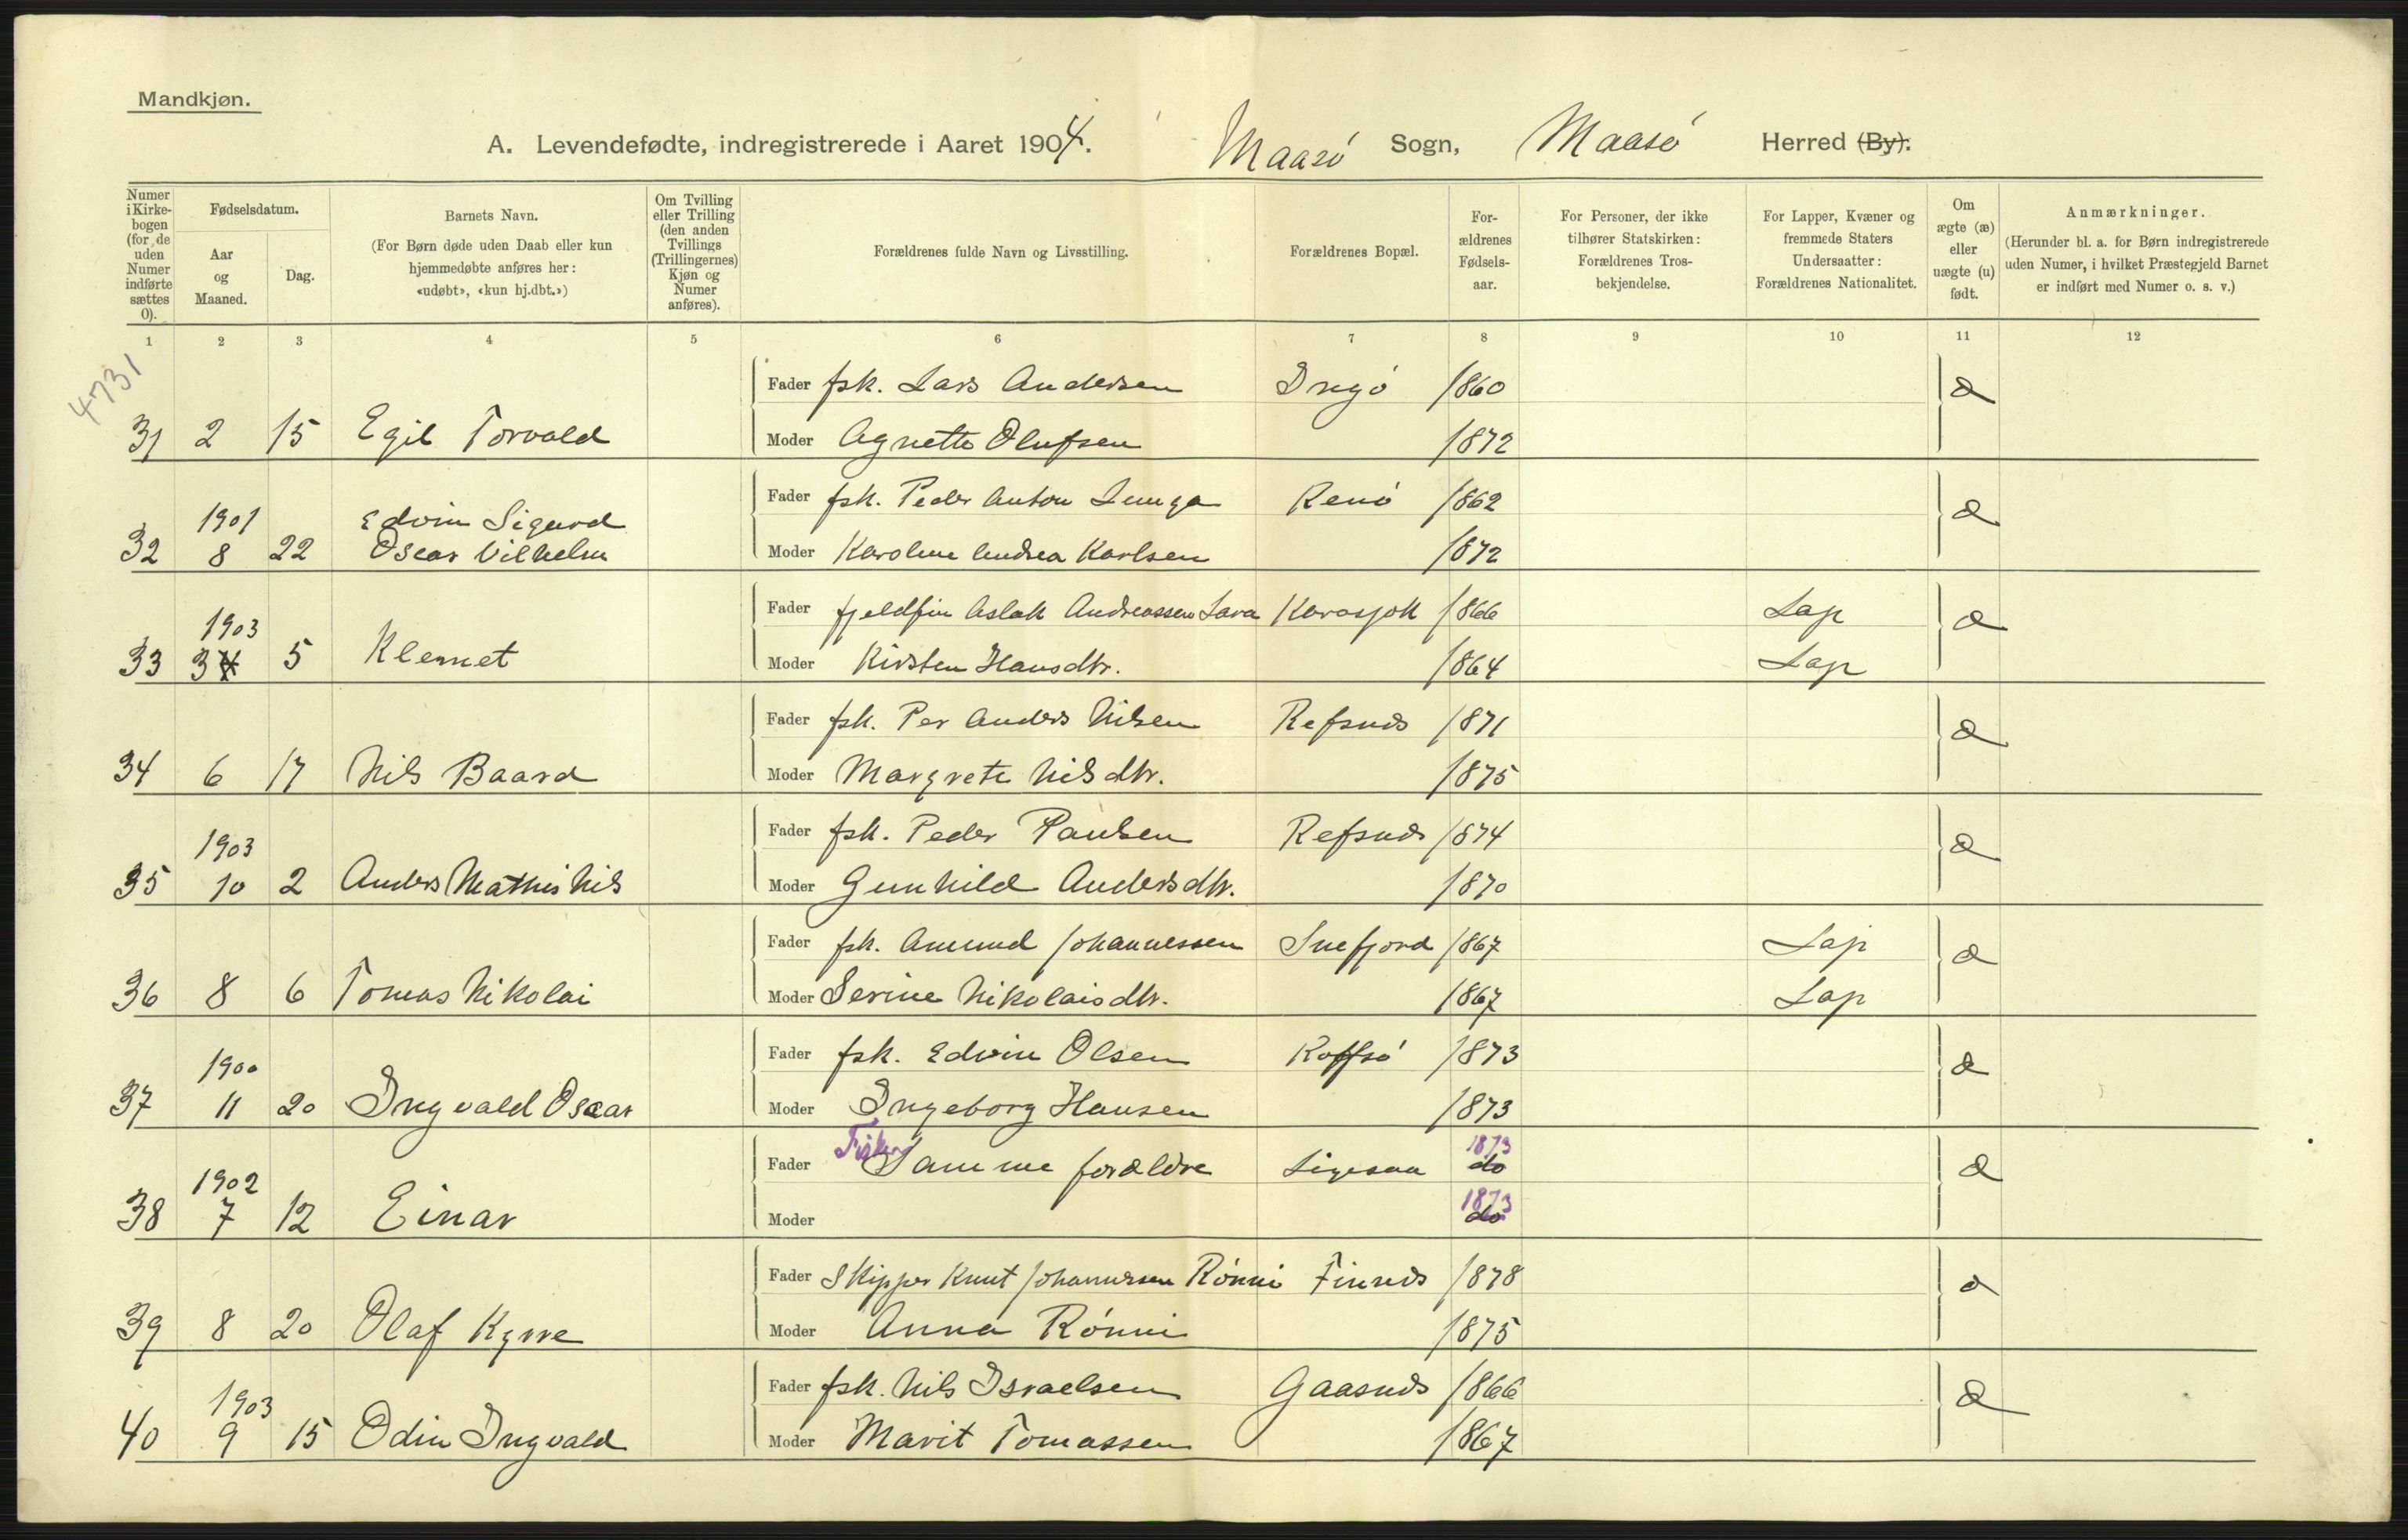 Mandkjøn.
A. Levendefødte, indregistrerede i Aaret 1904. Maasø Sogn, Maasø Herred (By).
Numer i Kirkebogen (for de uden Numer indførte sættes 0).
Fødselsdatum.
Aar og Maaned.
Dag.
Barnets Navn.
(For Børn døde uden Daab eller kun hjemmedøbte anføres her: «udøbt», «kun hj.dbt.»)
Om Tvilling eller Trilling (den anden Tvillings (Trillingernes) Kjøn og Numer anføres).
Forældrenes fulde Navn og Livsstilling.
Forældrenes Bopæl.
Forældrenes Fødselsaar.
For Personer, der ikke tilhører Statskirken: Forældrenes Trosbekjendelse.
For Lapper, Kvæner og fremmede Staters Undersaatter: Forældrenes Nationalitet.
Om ægte (æ) eller uægte (u) født.
Anmærkninger.
(Herunder bl. a. for Børn indregistrerede uden Numer, i hvilket Præstegjeld Barnet er indført med Numer o. s. v.)
1 2 3 4 5 6 7 8 9 10 11 12
4731
Fader fsk. Lars Andersen Ingø 1860 æ
31 2 15 Egil Torvald Moder Agnette Olufsen 1872
Fader fsk. Peder Anton Renø 1862 æ
1901 Edvin Sigurd
32 8 22 Oscar Vilhelm Moder Karoline Andrea Karlsen 1872
Fader fjeldfin Aslak Andreassen Sara Karasjok 1866 Lap æ
1903
33 3 5 Klemet Moder Kirsten Hansdtr. 1864 Lap
Fader fsk. Per Anders Nilsen Refsnds 1871 æ
34 6 17 Nils Baard Moder Margrete Nilsdtr. 1875
Fader fsk. Peder Paulsen Refsnds 1874 æ
1903
35 10 2 Anders Mathis Nils Moder Gunhild Andersdtr. 1870
Fader fsk. Amund Johannessen Snefjord 1867 Lap æ
36 8 6 Tomas Nikolai Moder Serine Nikolaisdtr. 1867 Lap
Fader fsk. Edvin Olsen Rolfsø 1873 æ
1900
37 11 20 Ingvald Oscar Moder Ingeborg Hansen 1873
Fisker 1873
Fader Samme forældre Ligesaa do æ
1902 1873
38 7 12 Einar Moder do
Fader Skipper Knut Johannessen Rønni Finnes 1878 æ
39 8 20 Olaf Kyrre Moder Anna Rønni 1875
Fader fsk. Nils Israelsen Gaasnds 1866 æ
1903
40 9 15 Odin Ingvald Moder Marit Tomassen 1867